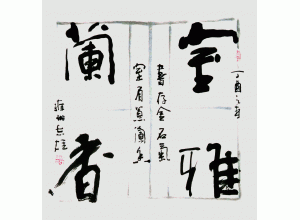 丁酉
室雅
書存金石氣
室有蕙蘭香
蘭香